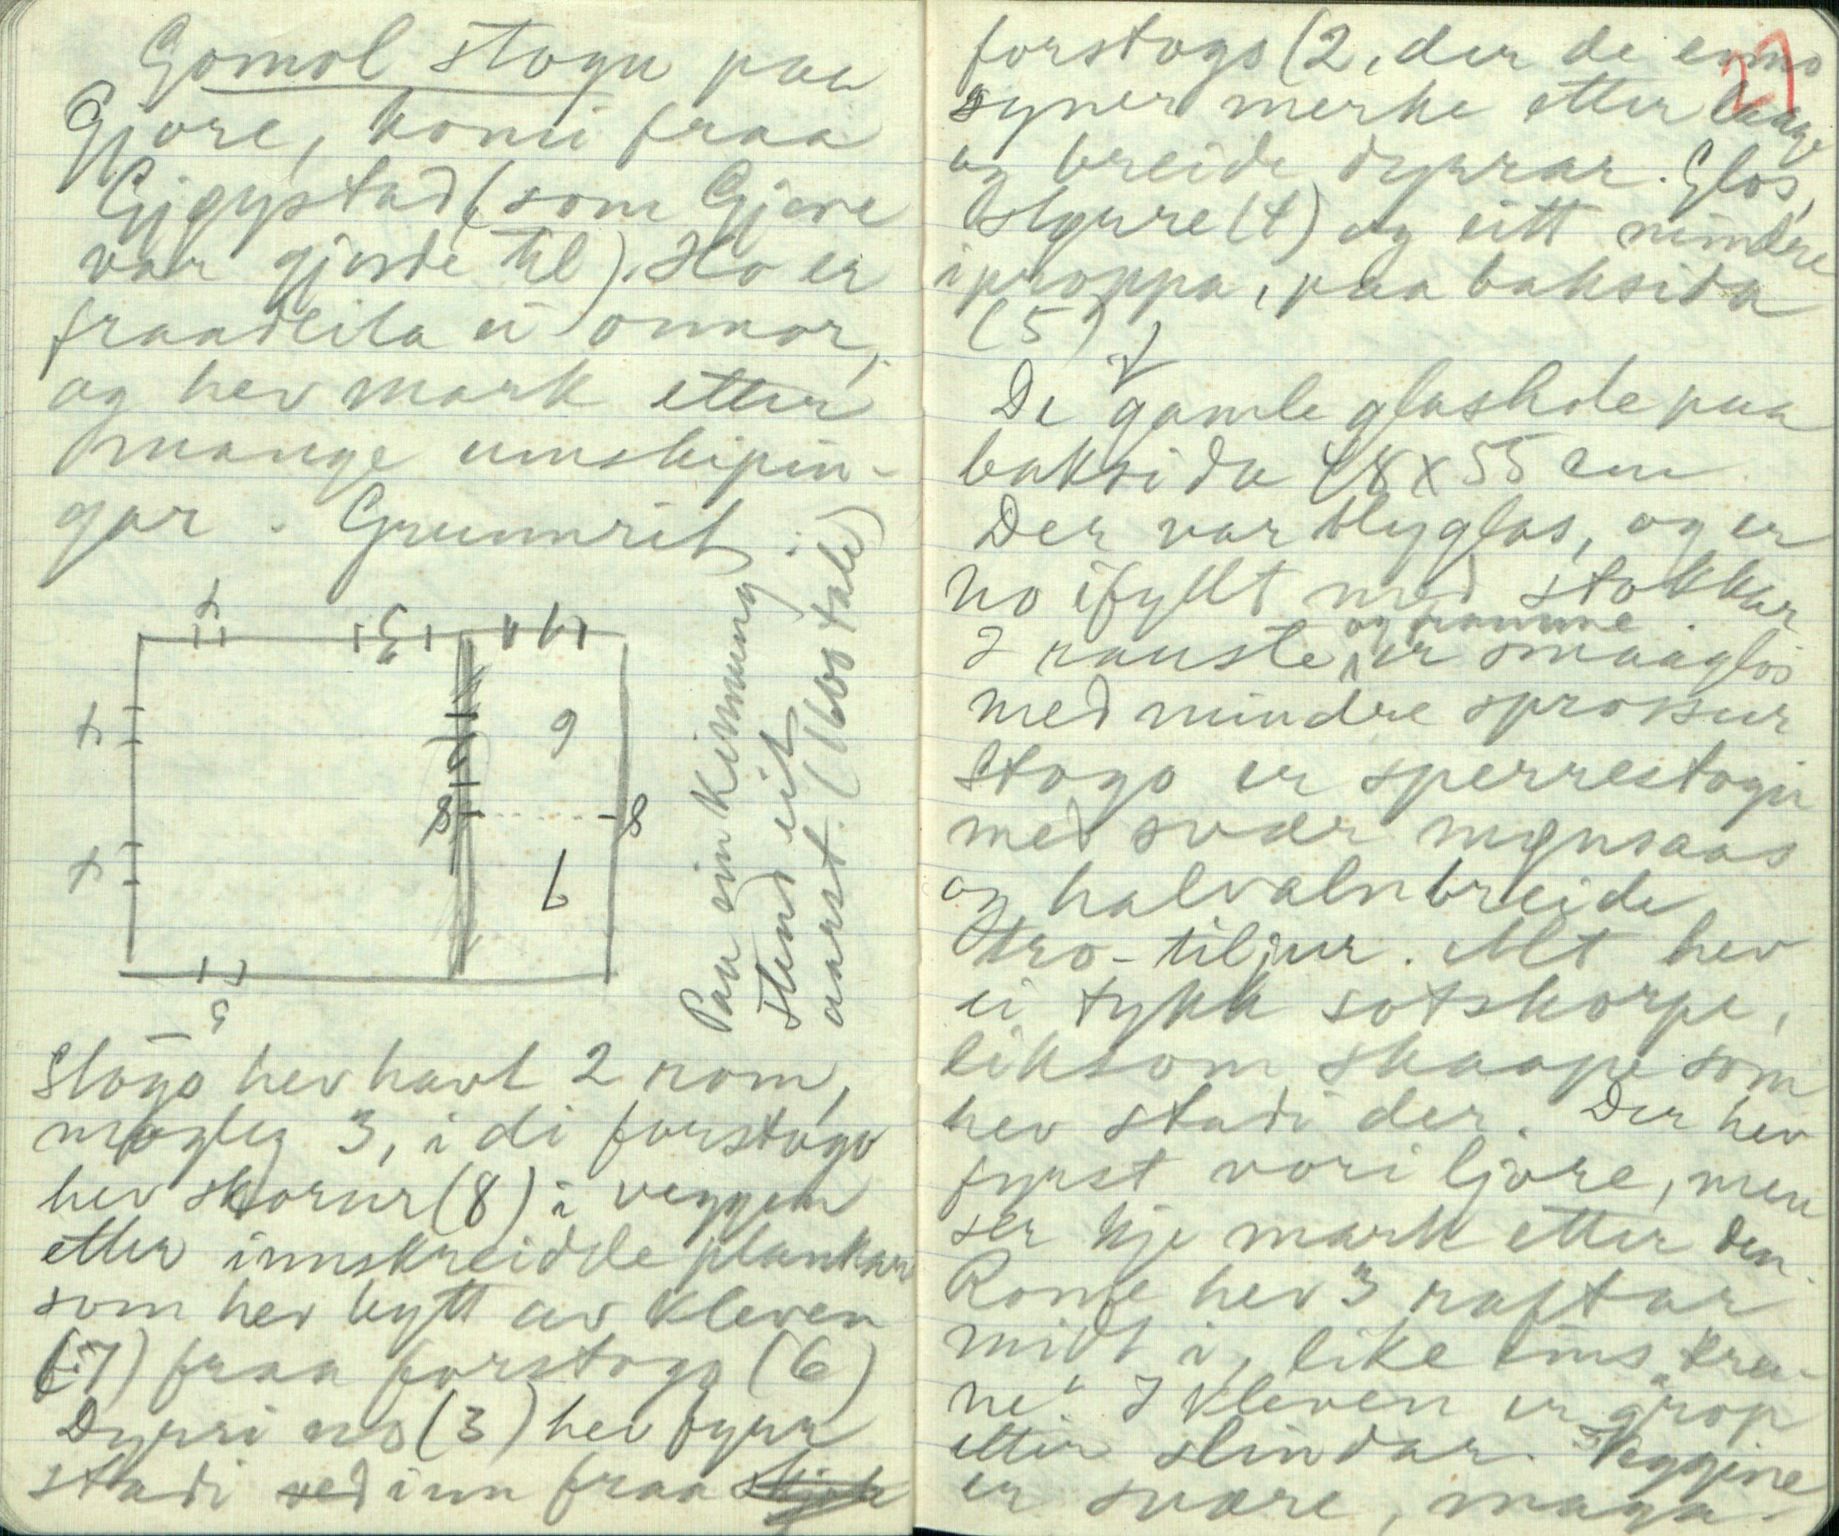 Gomol stogu paa
Gjøre, komi fraa
Gjøystad (som Gjøre
var gjerde til). Ho er
fraadeila ei onnor,
og hev mark etter
mange umskipin-
gar. Grunnrit:
4 3 4
4 6
8 8
4 6
5
Paa ein kimmung
stend eit
aarst. (1600 tale)
Stogo hev havt 2 rom,
mogleg 3, i di forstogo
hev skorur (8) i veggen
etter innskreidde plankar
som hev bytt av kleven
(7) fraa forstogo (6)
Dynni no (3) hev fyrr
stadi ved inn fraa
27
forstogo (2, der de enno
syner merke etter laage
og breide dyrrar. Glos,
Uglgure (4) og eitt mindre
iproppa, paa baksida
(5)
De gamle glashole paa
baksida 48 x 55 cm
Der var blyglas, og er
no ifyllt med stokkar.
I rauste og framme er smaaglos
med mindre sprossur
Stogo er sperrestogu
med svær mynsaas
og halvaln breide
tro-tiljur. Alt hev
ei tykk sotskorpe,
liksom skaape som
hev stadi der. Der hev
fyrst vori ljore, men
ser kje mark etter den.
Rome hev 3 raftar
midt i, like eins
I kleven er grop
etter slindar. Veggine
er svære, maga-